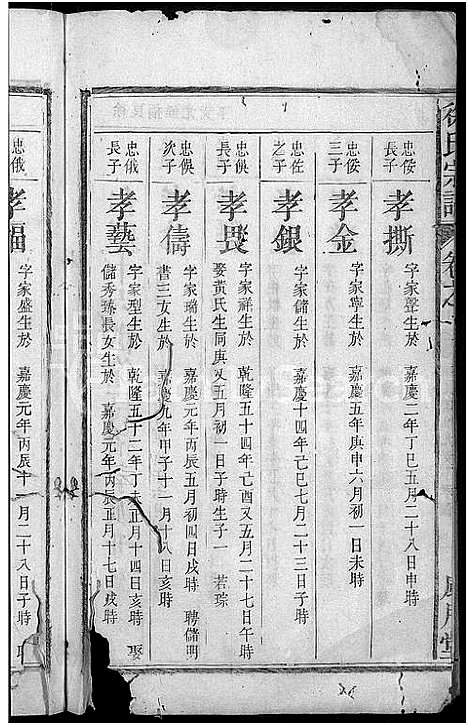 徐氏宗譜
忠佞長子
孝撕
字家聲生於 嘉慶二年丁巳五月二十八日申時
忠佞三子
孝金
字家寧生於 嘉慶五年庚申六月初一日未時
忠佐之子
孝銀
字家儲生於 嘉慶十四年己巳七月二十三日子時
忠俁長子
孝畏
字家祥生於 乾隆五十四年己酉又五月二十七日午時
娶黃氏生同庚又五月初一日子時生子一 若琮
忠俁次子
孝儔
字家瑞生於 嘉慶元年丙辰五月初四日戌時 聘儲明
書三女生於 嘉慶九年甲子十一月十八日亥時
忠俄長子
孝藝
字家型生於 乾隆五十二年丁未正月十四日亥時 娶
儲秀臻長女生於 嘉慶元年丙辰正月十七日戌時
忠俄
孝福
字家盛生於 嘉慶元年丙辰十一月二十八日子時